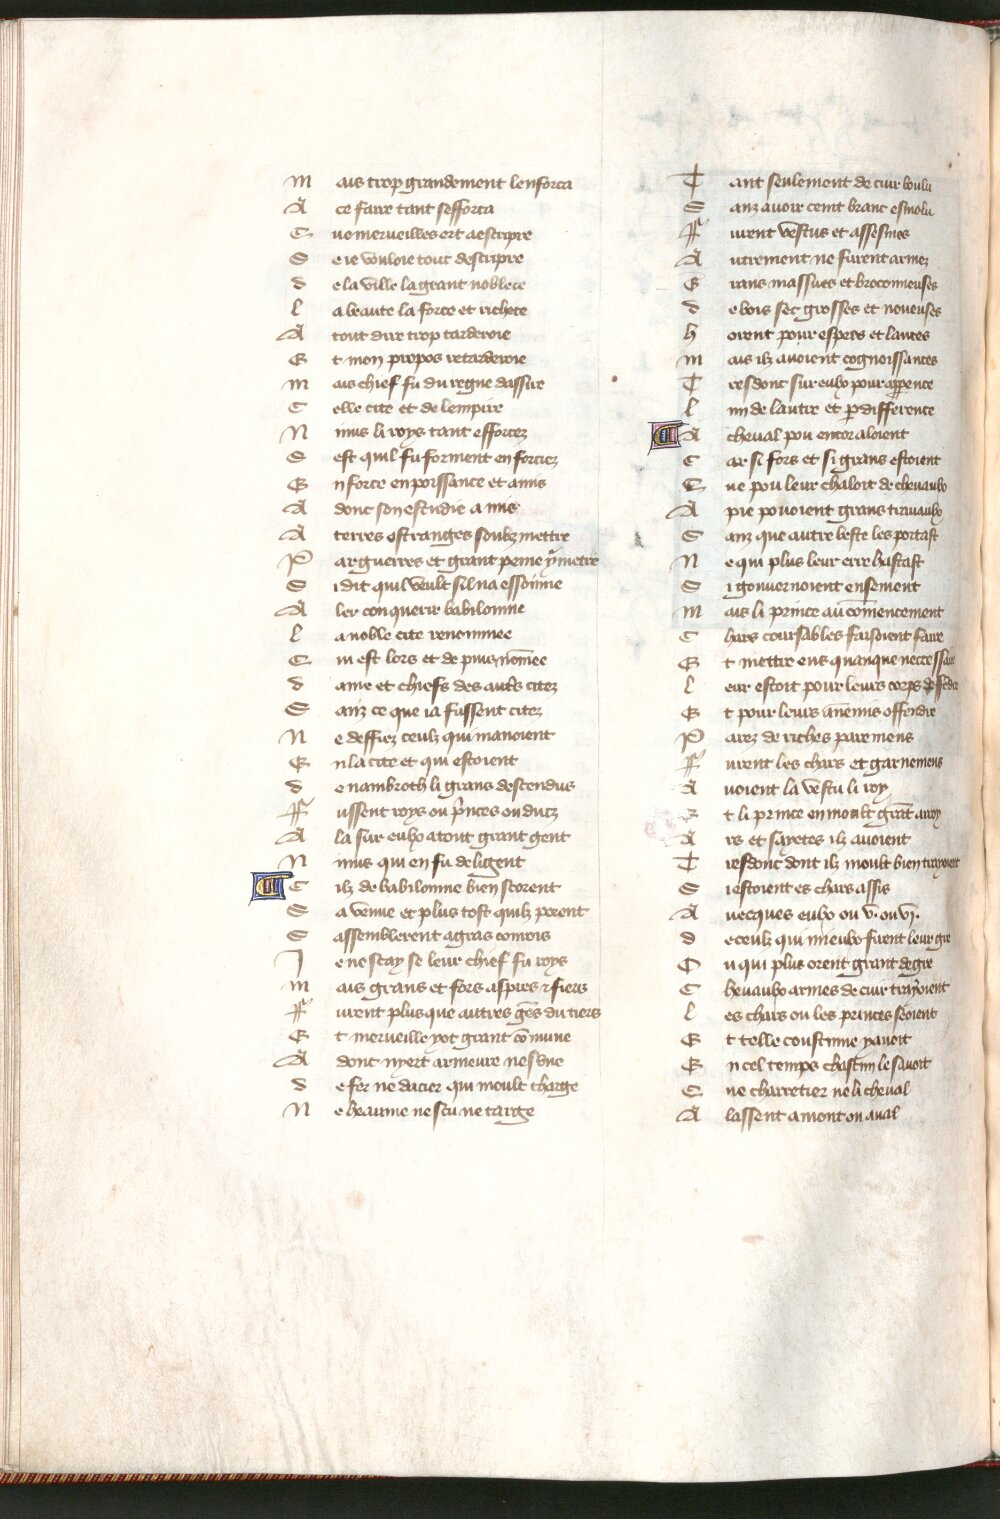 Mais trop grandement lenforca
A ce faire tant sefforca
Cuo merueilles ert a escripre
Se ie vouloie tout descripre
De la ville la grant noblece
La beaute la force et richece
A tout dire trop tarderoie
Et mon propos retarderoie
Mais chief fu du regne dassire
Celle cite et de lempire
Ninus li roys tant efforcez
Sest quil fu forment enforciez
En force en poissance et amis
A donc son estudie a mis
A terres estranges soubz mettre
Par guerres et grant peine y mettre
Si dit quil veult sil na essoinne
Aler conquerir babiloinne
La noble cite renommee
Cui est lors et de puis nōmee
Dame et chiefs des autres citez
Sanz ce que ia fussent citez
Ne deffiez ceulz qui manoient
En la cite et qui estoient
De nambroth li grans descendus
Fussent roys ou princes ou ducz
Ala sur eulx a tout grant gent
Ninus qui en fu deligent
Cilz de babiloinne bien scorent
Sa venue et plus tost quilz porent
Sassemblerent a grās conrois
Je ne scay se leur chief fu roys
Mais grans et fors aspres & fiers
Furent plus que autres gēs du tiers
Et merueille y ot grant cōmune
A dont ny ert armeure nesune
De fer ne dacier qui moult charge
Ne heaume nescu ne targe
Tant seulement de cuir boulu
Sanz auoir ceint branc esmolu
Furent vestus et assesmes
Autrement ne furent armez
Grans massues et broconneuses
De bois sec grosses et noueuses
Horent pour espees et lances
Mais ilz auoient cognoissances
Tres dont sur eulx pour apparence
Lun de lautre et p difference
A cheual pou encor aloient
Car si fors et si grans estoient
Que pou leur chaloit de cheuaulx
A pie pouoient grans trauaulx
Sanz que autre beste les portast
Ne qui plus leur erre hastast
Si gouuernoient ensement
Mais li prince au cōmencement
Chars coursables faisoient faire
Et mettre ens quanque neccessaire
Leur estoit pour leurs corps deffēdre
Et pour leurs anemis offendre
Parez de riches paremens
Furent les chars et garnemens
Auoient la vestu li roy
Et li prince en moult grāt arroy
Ars et sayetes ilz auoient
Tres dont dont ilz moult bien trayoient
Si estoient es chars assis
Auecques eulx ou v. ou vj.
De ceulz qui mieulx furent leur gre
Ou qui plus orent grant degre
Cheuaulx armes de cuir trayoient
Les chars ou les princes seoient
Et telle coustume y auoit
En cel temps chascun le sauoit
Que charretier ne li cheual
Alassent amont ou aual